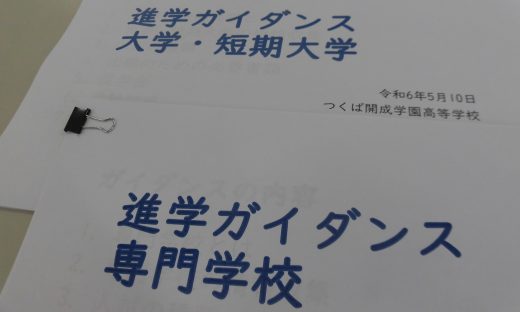 進学ガイダンス
大学・短期大学
令和6年5月10日
つくば開成学園高等学校
ガイダンスの内容
進学ガイダンス
専門学校